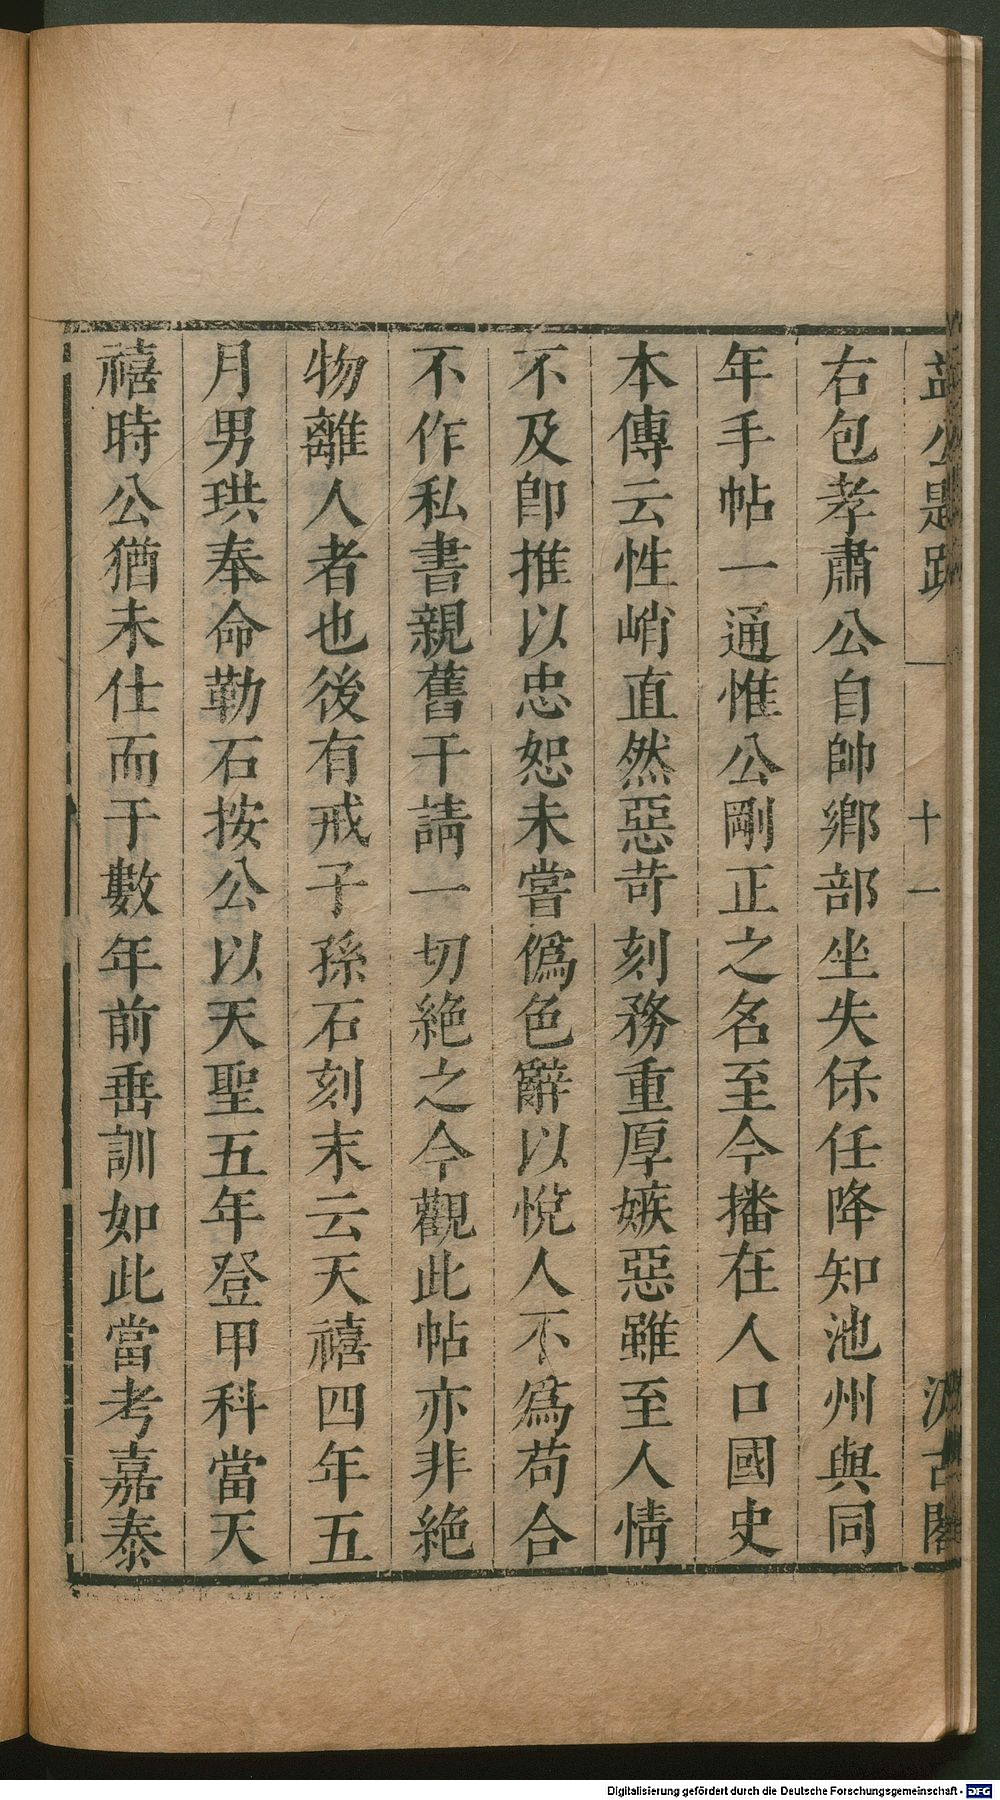 益公題跋 十一 汲古閣
右包孝肅公自帥鄉部坐失保任降知池州與同
年手帖一通惟公剛正之名至今播在人口國史
本傳云性峭直然惡苛刻務重厚嫉惡雖至人情
不及卽推以忠恕未嘗僞色辭以悅人不爲苟合
不作私書親舊干請一切絶之今觀此帖亦非絶
物離人者也後有戒子孫石刻末云天禧四年五
月男珙奉命勒石按公以天聖五年登甲科當天
禧時公猶未仕而于數年前垂訓如此當考嘉泰
Digitalisierung gefördert durch die Deutsche Forschungsgemeinschaft - DFG